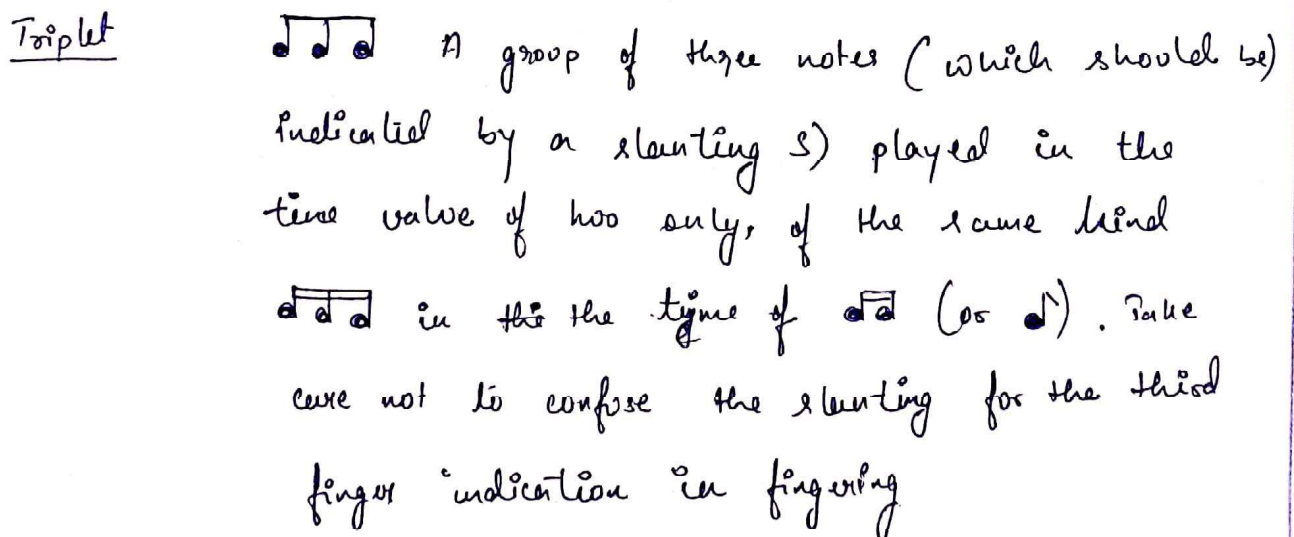 Triplet ♩♩♩ A group of three notes (which should be)
indicated by a slanting 3) played in the
time value of two only, of the same kind
♬♪ in the the tyme of ♬ (or ♪). Take
care not to confuse the slanting for the third
finger indication in fingering